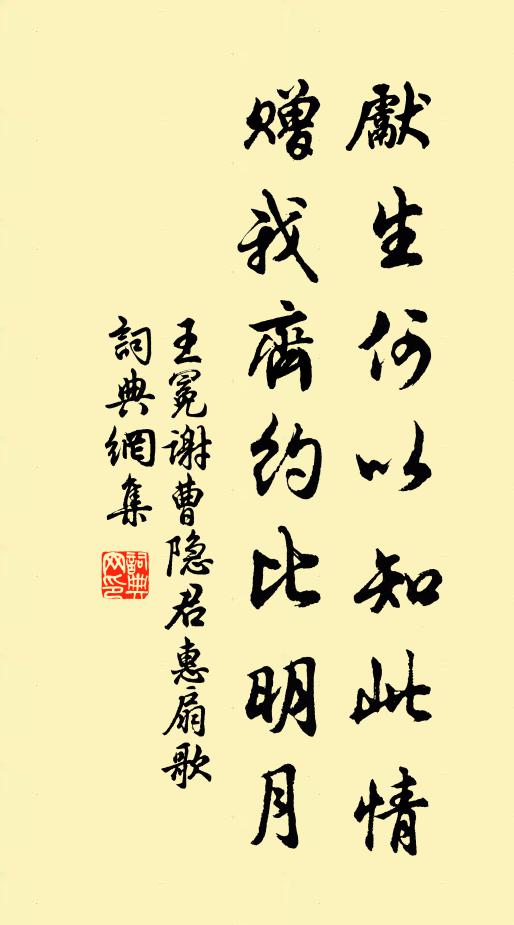 獻生何以知此情
赠我齊約比明月
王冕谢曹隐君惠扇歌
詞典網集
詞典网印